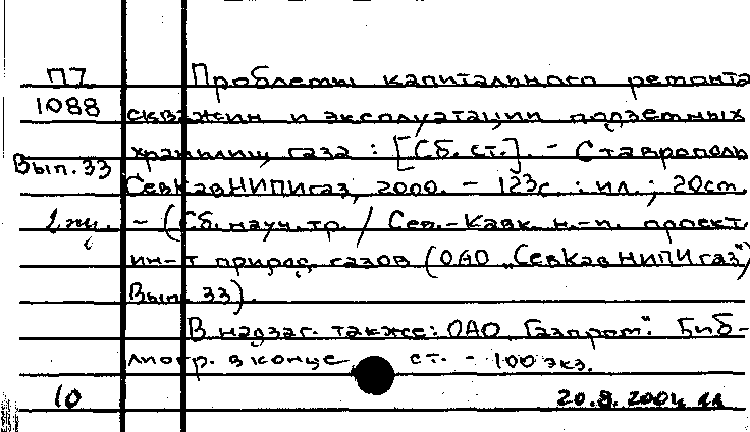 П7 Проблемы капитального ремонта
1088 скважин и эксплуатации подземных
хранилищ газа : [Сб. ст.]. - Ставрополь
Вып. 33 СевКавНИПИгаз, 2000. - 123с. : ил. ; 20см.
- (Сб. науч. тр. / Сев.-Кавк. н.-и. проект.
ин-т природ. газов (ОАО „СевКавНИПИгаз")
Вып. 33).
В надзаг. также: ОАО „Газпром". Биб-
лиогр. в конце ст. - 100 экз.
10 20.8.2001